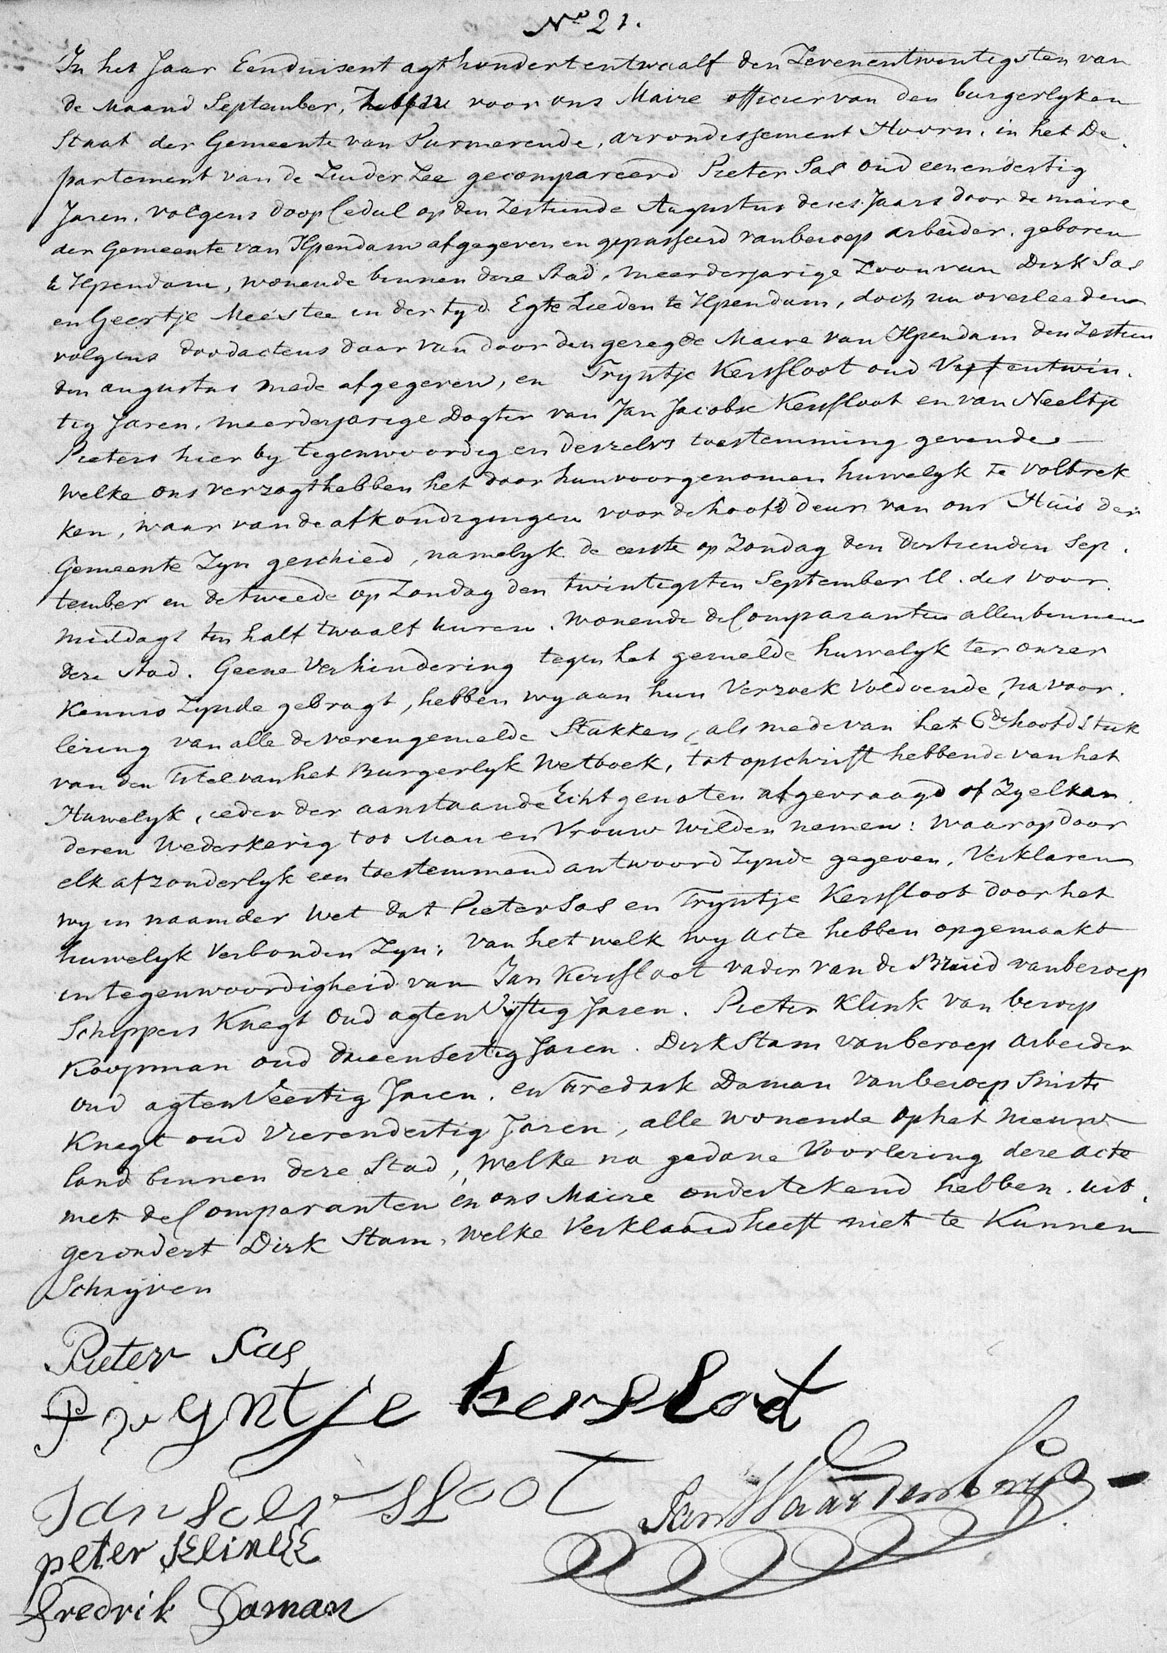 No 21.
In het Jaar Eenduisent agthondertentwaalf den Zevenentwintigsten van
de Maand September, hebben voor ons Maire officier van den burgerlyken
Staat der Gemeente van Purmerende, arrondissement Hoorn, in het De
partement van de Zuider Zee gecompareerd Pieter Sas oud eenendertig
Jaren, volgens doop Cedul op den Zestiende Augustus deses Jaars door de maire
der Gemeente van Ilpendam afgegeven en gepasseerd van beroep arbeider, geboren
te Ilpendam, wonende binnen deze Stad, meerderjarige Zoon van Dirk Sas
en Geertje Meestee in der tyd Egte Lieden te Ilpendam, doch nu overleeden
volgens doodactens daar van door den gezegde Maire van Ilpendam den Zestien
den augustus mede afgegeven, en Tryntje Kersfloot oud Vyfentwin.
tig Jaren, meerderjarige Dogter van Jan Jacobse Kersfloot en van Neeltje
Pieters hier by tegenwoordig en derzelvs toestemming gevende
Welke ons verzogt hebben het door hun voorgenomen huwelyk te voltrek
ken, waar van de afkondigingen voor de hoofd deur van ons Huis der
Gemeente Zyn geschied, namelyk de eerste op Zondag den dertienden Sep.
tember en de tweede op Zondag den twintigsten September ll. des voor
middags ten half twaalf uuren. Wonende de Comparanten allen binnen
deze Stad. Geene Verhindering tegen het gemelde huwelyk ter onzer
Kennis Zynde gebragt, hebben wy aan hun Verzoek Voldoende, na voor.
lezing van alle de vorengemelde Stukken, als mede van het 6de hoofd Stuk
van den Titel van het Burgerlyk Wetboek, tot opschrift hebbende van het
Huwelyk, ieder der aanstaande Echtgenoten afgevraagd of Zy elkan.
deren Wederkerig tot Man en Vrouw Wilden nemen: Waar op door
elk afzonderlyk een toestemmend antwoord Zynde gegeven, Verklaren
wy in naam der Wet dat Pieter Sas en Tryntje Kersfloot door het
huwelyk Verbonden Zyn; Van het welk wy acte hebben opgemaakt
in tegenwoordigheid van Jan Kersfloot vader van de Bruid van beroep
Schippers Knegt oud agtenVyftig Jaren. Pieter Klink van beroep
Koopman oud drieensestig Jaren. Dirk Stam van beroep Arbeider
oud agtenVeertig Jaren. en Fredrik Daman van beroep Smits
Knegt oud Vierendertig Jaren, alle wonende op het Nieuw
land binnen deze Stad, Welke na gedane Voorlezing deze acte
met de Comparanten en ons Maire ondertekend hebben. uit.
gezondert Dirk Stam, Welke Verklaard heeft niet te Kunnen
Schryven
Pieter Sas
Tryntje kersslood
Jan kersslooT
peter klinck
fredrik Daman
Jan Waardenburg